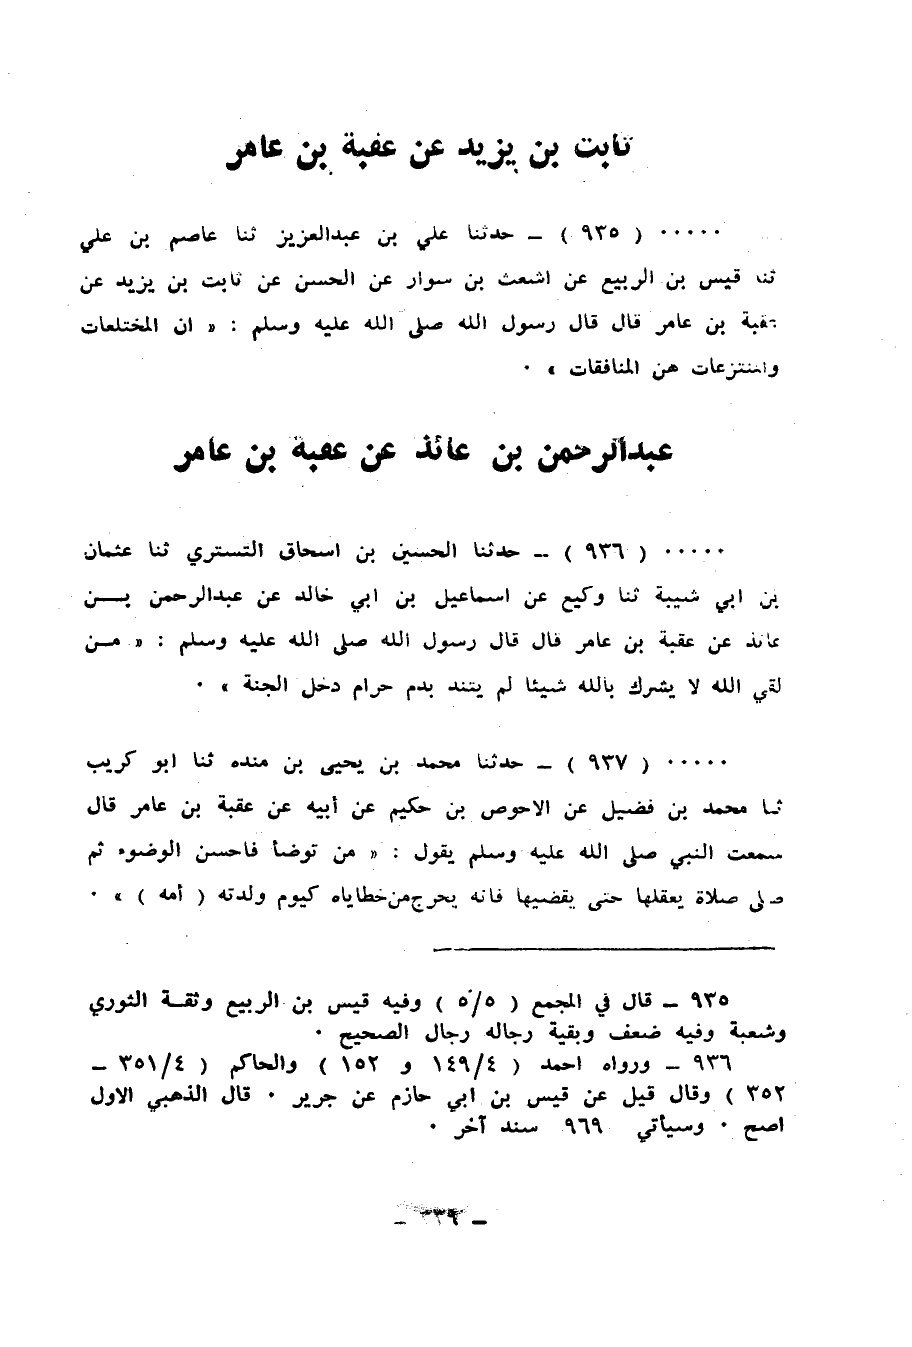 ثابت بن يزيد عن عقبة بن عامر
٠٠٠٠٠ ( ٩٣٥ ) ـ حدثنا علي بن عبدالعزيز ثنا عاصم بن علي
ثنا قيس بن الربيع عن اشعث بن سوار عن الحسن عن ثابت بن يزيد عن
عقبة بن عامر قال قال رسول الله صلى الله عليه وسلم : « ان المختلعات
والمنتزعات هن المنافقات » ٠
عبدالرحمن بن عائذ عن عقبة بن عامر
٠٠٠٠٠ ( ٩٣٦ ) ـ حدثنا الحسين بن اسحاق التستري ثنا عثمان
بن ابي شيبة ثنا وكيع عن اسماعيل بن ابي خالد عن عبدالرحمن بـــن
عائذ عن عقبة بن عامر قال قال رسول الله صلى الله عليه وسلم : « مـن
لقي الله لا يشرك بالله شيئا لم يتند بدم حرام دخل الجنة » ٠
٠٠٠٠٠ ( ٩٣٧ ) ـ حدثنا محمد بن يحيى بن منده ثنا ابو كريب
ثنا محمد بن فضيل عن الاحوص بن حكيم عن أبيه عن عقبة بن عامر قال
سمعت النبي صلى الله عليه وسلم يقول : « من توضأ فاحسن الوضوء ثم
صلى صلاة يعقلها حتى يقضيها فانه يخرج من خطاياه كيوم ولدته ( أمه ) » ٠
٩٣٥ ـ قال في المجمع ( ٥/٥ ) وفيه قيس بن الربيع وثقـة الثوري
وشعبة وفيه ضعف وبقية رجاله رجال الصحيح ٠
٩٣٦ ـ ورواه احمد ( ١٤٩/٤ و ١٥٢ ) والحاكم ( ٣٥١/٤ ـ
٣٥٢ ) وقال قيل عن قيس بن ابي حازم عن جرير ٠ قال الذهبي الاول
اصح ٠ وسيأتي ٩٦٩ سند آخر ٠